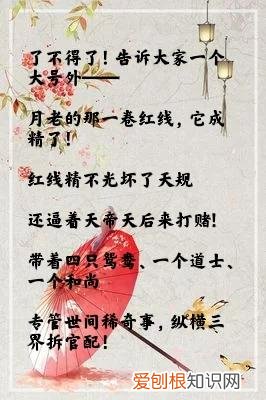 了不得了！告诉大家一个
大号外——
月老的那一卷红线，它成
精了！
红线精不光坏了天规
还逼着天帝天后来打赌！
带着四只鸳鸯、一个道士、
一个和尚
专管世间稀奇事，纵横三
界拆官配！
爱刨根知识网